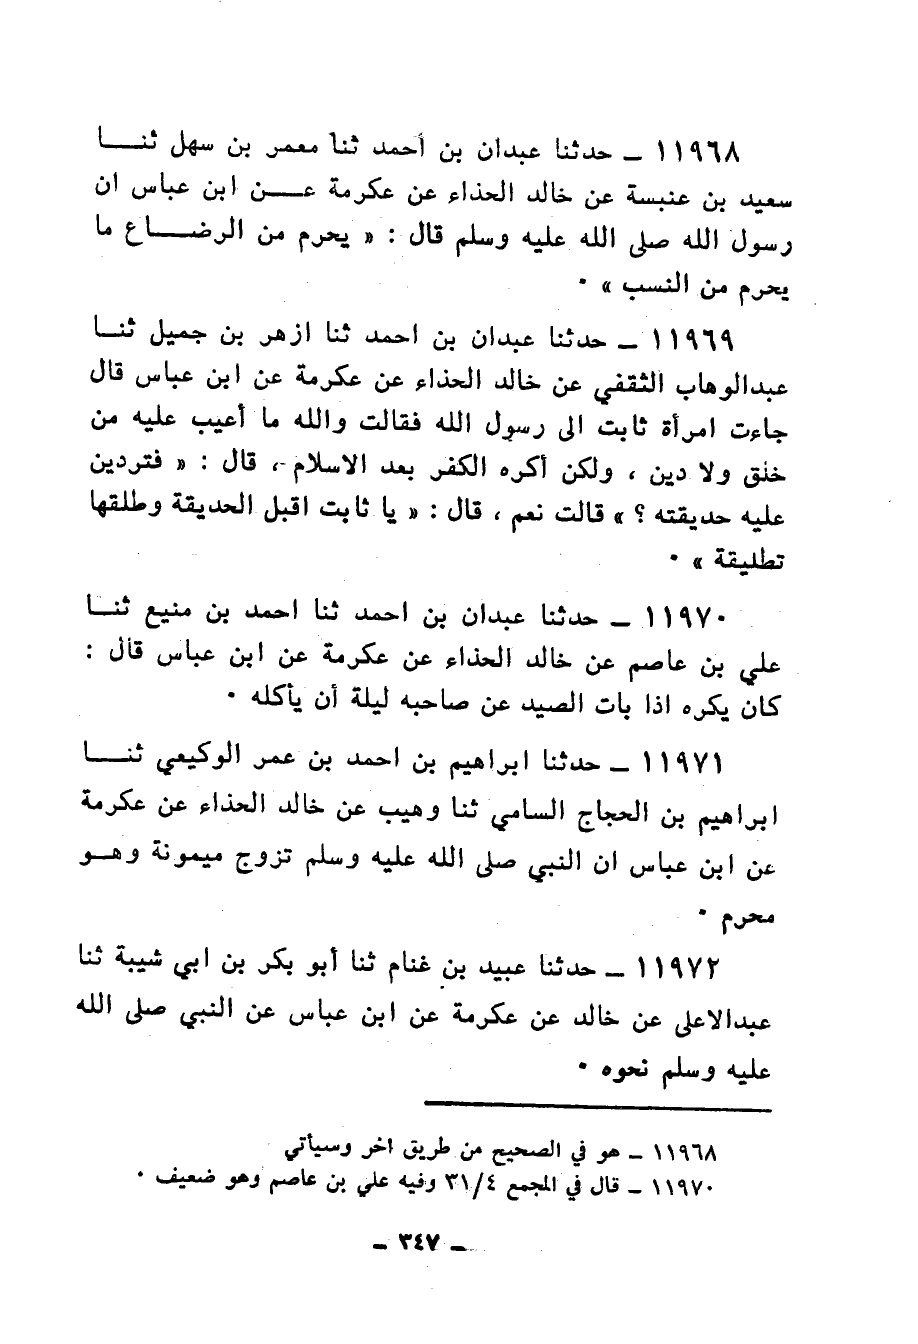 ١١٩٦٨ ـ حدثنا عبدان بن أحمد ثنا معمر بن سهل ثنـــا
سعيد بن عنبسة عن خالد الحذاء عن عكرمة عـــن ابن عباس ان
رسول الله صلى الله عليه وسلم قال : « يحرم من الرضـــاع ما
يحرم من النسب » ٠
١١٩٦٩ ـ حدثنا عبدان بن احمد ثنا ازهر بن جميل ثنـــا
عبدالوهاب الثقفي عن خالد الحذاء عن عكرمة عن ابن عباس قال
جاءت امرأة ثابت الى رسول الله فقالت والله ما أعيب عليه من
خلق ولا دين ، ولكن أكره الكفر بعد الاسلام ، قال : « فتردين
عليه حديقته ؟ » قالت نعم ، قال : « يا ثابت اقبل الحديقة وطلقها
تطليقة » ٠
١١٩٧٠ ـ حدثنا عبدان بن احمد ثنا احمد بن منيع ثنـــا
علي بن عاصم عن خالد الحذاء عن عكرمة عن ابن عباس قال :
كان يكره اذا بات الصيد عن صاحبه ليلة أن يأكله ٠
١١٩٧١ ـ حدثنا ابراهيم بن احمد بن عمر الوكيعي ثنـــا
ابراهيم بن الحجاج السامي ثنا وهيب عن خالد الحذاء عن عكرمة
عن ابن عباس ان النبي صلى الله عليه وسلم تزوج ميمونة وهــو
محرم ٠
١١٩٧٢ ـ حدثنا عبيد بن غنام ثنا أبو بكر بن ابي شيبة ثنا
عبدالاعلى عن خالد عن عكرمة عن ابن عباس عن النبي صلى الله
عليه وسلم نحوه ٠
١١٩٦٨ ـ هو في الصحيح من طريق اخر وسيأتي
١١٩٧٠ ـ قال في المجمع ٣١/٤ وفيه علي بن عاصم وهو ضعيف ٠
ـ ٣٤٧ ـ